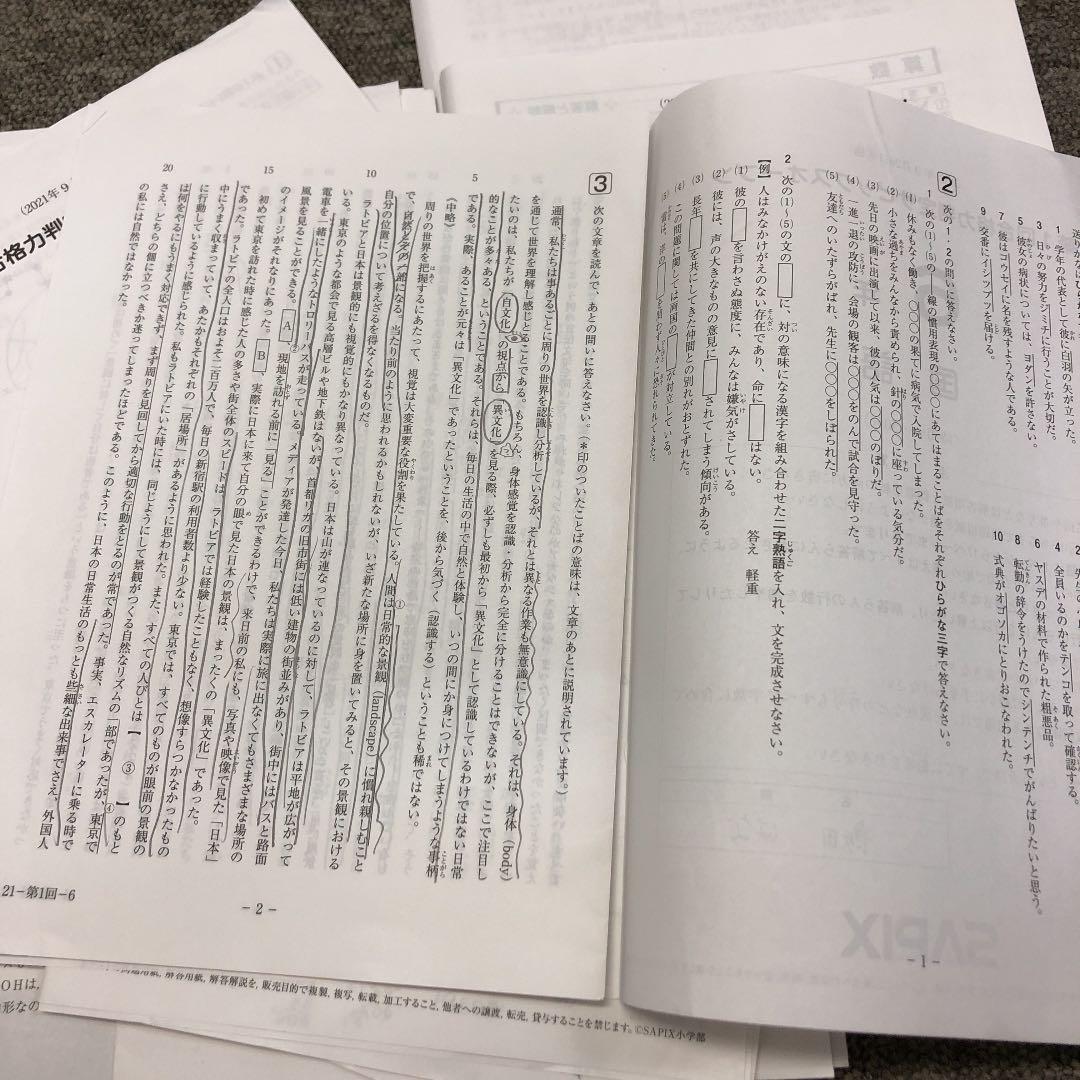 1 学年の代表として彼に白羽の矢が立った。
3 日々の努力をジミチに行うことが大切だ。
5 彼女の病状については、ヨダンを許さない。
7 彼はコウセイに名を残すような人である。
9 交番にイシツブツを届ける。
4 全員いるのかをテンコを取って確認する。
6 ヤスデの材料で作られた粗悪品。
8 転勤の辞令をうけたのでシンテンチでがんばりたいと思う。
10 式典がオゴソカにとりおこなわれた。
2
次の1・2の問いに答えなさい。
1 次の(1)~(5)の――線の慣用表現の○○○にあてはまることばをそれぞれひらがな三字で答えなさい。
(1) 休みもなく働き、○○○の果てに病気で入院してしまった。
(2) 小さな過ちをみんなから責められ、針の○○○に座っている気分だ。
(3) 先日の映画に出演して以来、彼の人気は○○○のぼりだ。
(4) 一進一退の攻防に、会場の観客は○○○をのんで試合を見守った。
(5) 友達へのいたずらがばれ、先生に○○○をしぼられた。
2 次の(1)~(5)の文の□に、対の意味になる漢字を組み合わせた二字熟語を入れ、文を完成させなさい。
【例】人はみなかけがえのない存在であり、命に□はない。 答え 軽重
(1) 彼の□を言わさぬ態度に、みんなは嫌気がさしている。
(2) 会議では、声の大きなものの意見に□されてしまう傾向がある。
(3) 長年□を共にしてきた仲間との別れがおとずれた。
(4) この問題に関しては両国の□が対立している。
- 1 -
SAPIX
3
次の文章を読んで、あとの問いに答えなさい。(*印のついたことばの意味は、文章のあとに説明されています。)
通常、私たちは事あるごとに周りの世界を認識し分析しているが、それとは異なる作業も無意識にしている。それは、身体(body)
を通じて世界を理解し感じとることである。もちろん、身体感覚を認識・分析から完全に分けることはできないが、ここで注目し
たいのは、私たちが「自文化」の視点から「異文化」を見る際、必ずしも最初から「異文化」として認識しているわけではない日常
的なことが多々ある、ということである。それらは、毎日の生活の中で自然と体験し、いつの間にか身につけてしまうような事柄
5
である。実際、あることが元々は「異文化」であったということを、後から気づく(認識する)ということも稀ではない。
(中略)
周りの世界を把握するにあたって、視覚は大変重要な役割を果たしている。人間は日常的な景観(landscape)に慣れ親しむこと
で、自然とその一部になる。当たり前のように思われるかもしれないが、いざ新たな場所に身を置いてみると、その景観における
自分の位置について考えざるを得なくなるものだ。
10
ラトビアと日本は景観的にも視覚的にもかなり異なっている。日本は山が連なっているのに対して、ラトビアは平地が広がって
いる。東京のような都会で見る高層ビルや地下鉄はないが、首都リガの旧市街には低い建物の街並みがあり、街中にはバスと路面
電車を一緒にしたようなトロリーバスが走っている。メディアが発達した今日、私たちは実際に旅に出なくてもさまざまな場所の
風景を見ることができる。 A 、現地を訪れる前に「見る」ことができるわけで、来日前の私にも、写真や映像で見た「日本」
のイメージがそれなりにあった。 B 、実際に日本に来て自分の眼で見た日本の景観は、まったくの「異文化」であった。
15
初めて東京を訪れた時に感じた人の多さや街全体のスピードは、ラトビアでは経験したこともなく、想像すらつかなかったもの
であった。ラトビアの全人口はおよそ二百万人で、毎日の新宿駅の利用者数より少ない。東京では、すべてのものが眼前の景観の
中にうまく収まっていて、あたかもそれぞれの「居場所」があるように思われた。また、すべての人びとは【 ③ 】のもと
に行動しているように感じられた。私もラトビアにいた時には、同じようにして景観がつくる自然なリズムの一部であったが、東京で
は何をやるにもうまく対応できず、まず周りを見回してから適切な行動をとるのが常であった。事実、エスカレーターに乗る時で
20
さえ、どちらの側に立つべきか迷ってしまったほどである。このように、日本の日常生活のもっとも些細な出来事でさえ、外国人
の私には自然ではなかった。
21-第1回-6
- 2 -
算数
(2021年9
合格力判
解答用紙, 解答解説を, 販売目的で複製, 複写, 転載, 加工すること, 他者への譲渡, 転売, 貸与することを禁じます。©SAPIX小学部
OHは,
形なの